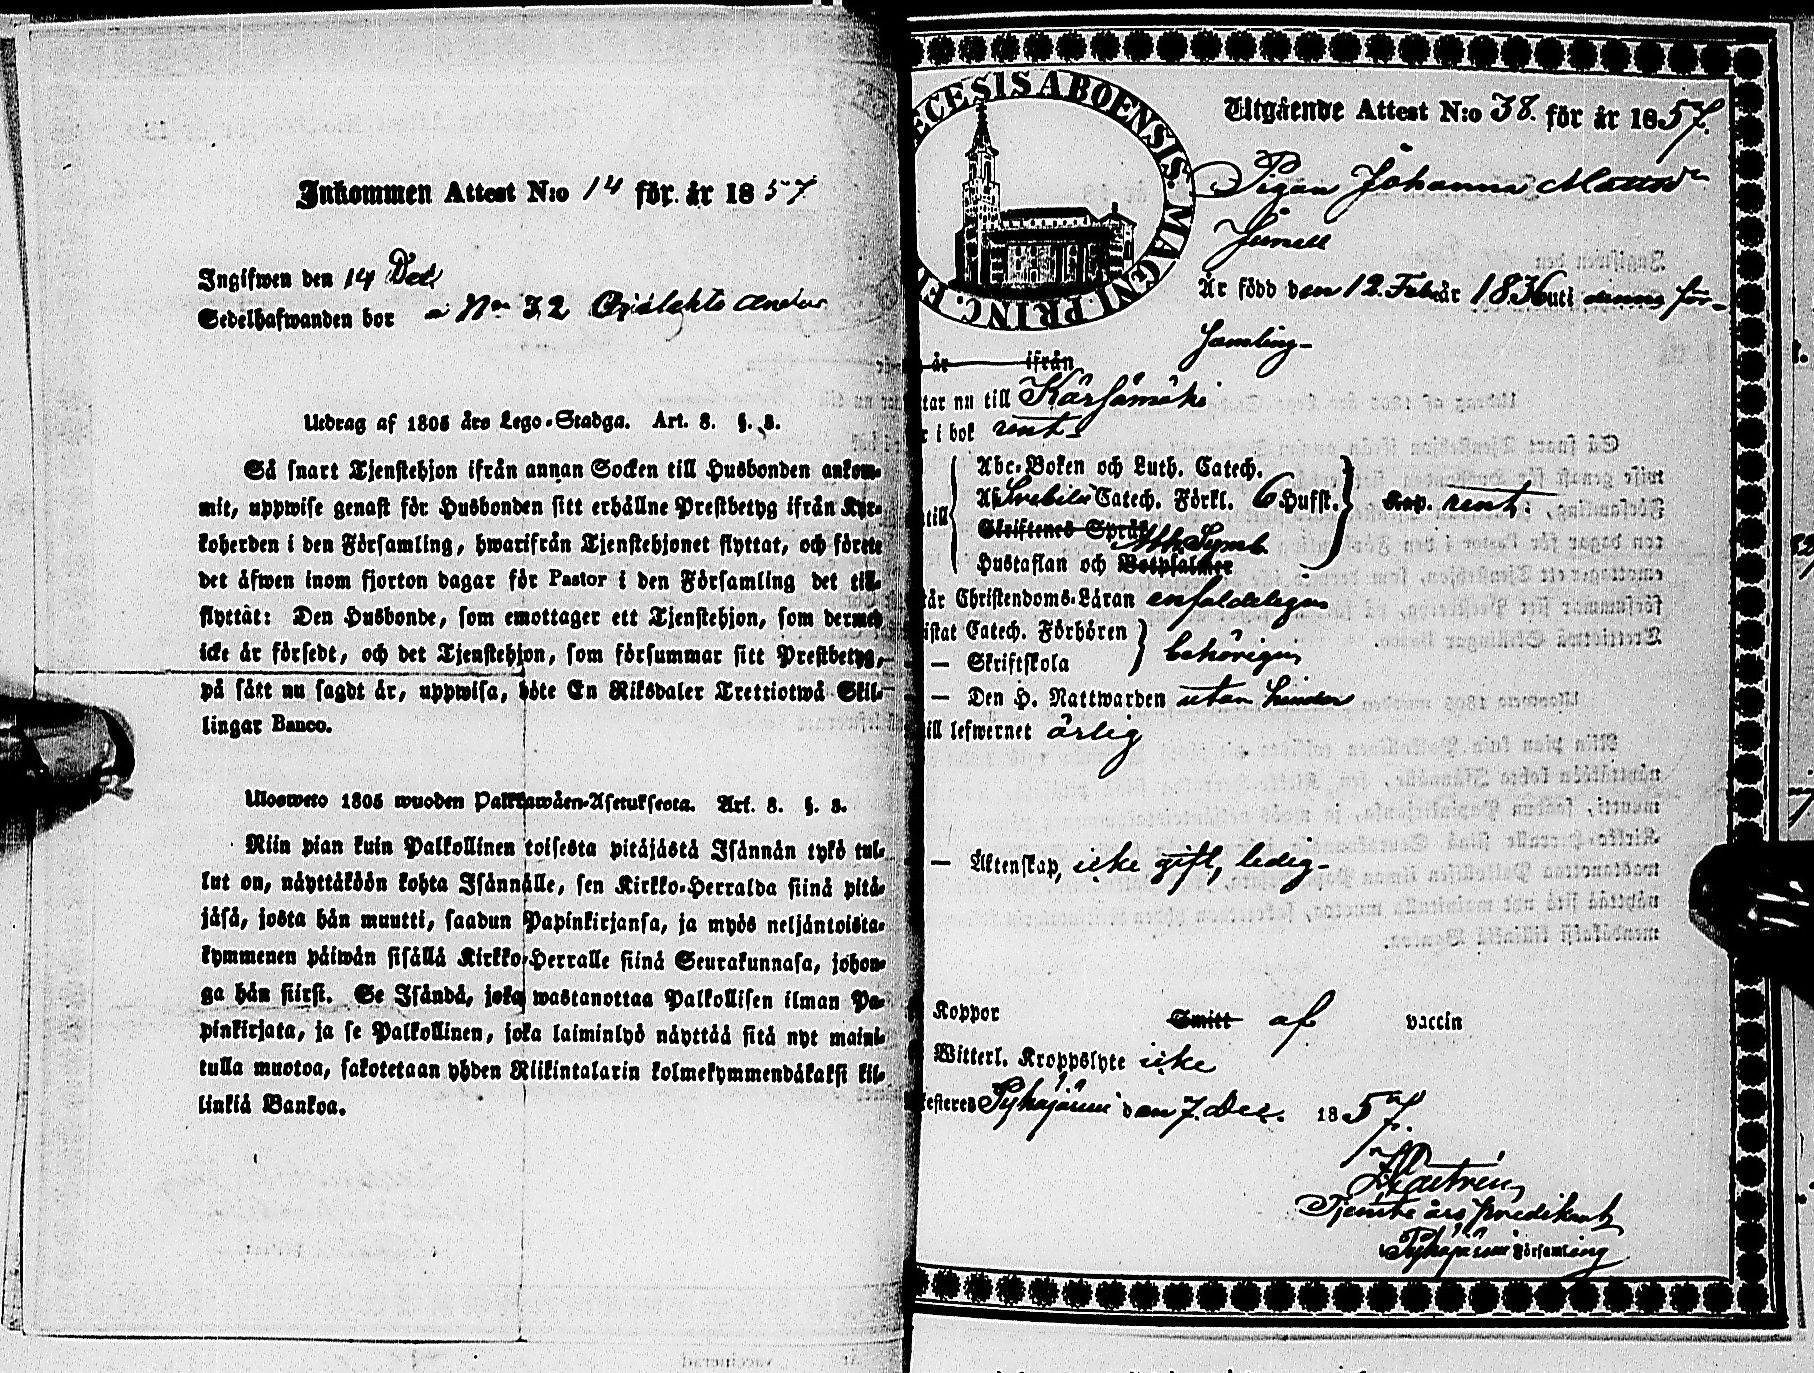 Inkommen Attest N:o 14 för år 1857
Ingifwen den 14 Dec
Sedelhafwanden bor a No 32
Utdrag af 1805 års Lego-Stadga. Art. 8. §. 3.
Så snart Tjenstehjon ifrån annan Socken till Husbonden ankom-
mit, uppwise genast för Husbonden sitt erhållne Prestbetyg ifrån Kyr-
koherden i den Församling, hwarifrån Tjenstehjonet flyttat, och förete
det äfwen inom fjorton dagar för Pastor i den Församling det till-
flyttåt: Den Husbonde, som emottager ett Tjenstehjon, som dermed
icke är försedt, och det Tjenstehjon, som försummar sitt Prestbetyg,
på sätt nu sagdt är, uppwisa, böte En Riksdaler Trettiotwå Skil-
lingar Banco.
Ulosweto 1805 wuoden Palkkawäen-Asetuksesta. Art. 8. §. 3.
Niin pian kuin Palkollinen toisesta pitäjästä Isännän tykö tul-
lut on, näyttäköön kohta Isännälle, sen Kirkko-Herralda siinä pitä-
jäsä, josta hän muutti, saadun Papinkirjansa, ja myös neljäntoista-
kymmenen päiwän sisällä Kirkko-Herralle siinä Seurakunnasa, johon-
ga hän siirst. Se Isändä, joka wastanottaa Palkollisen ilman Pa-
pinkirjata, ja se Palkollinen, joka laiminlyö näyttää sitä nyt maini-
tulla muotoa, sakotetaan yhden Riikintalarin kolmekymmendäkaksi kil-
linkiä Bankoa.
ECESIS ABOENSIS. MAGNI PRINC. F
Utgående Attest N:o 38. för år 1857.
Pigan Johanna Mattsdr
Junell
Är född den 12. Febr. år 1836 uti denna för-
samling-
år ifrån
tar nu till Kärsämäki
i bok rent-
Abc-Boken och Luth. Catech.
Af Svebilii Catech. Förkl. 6 Hufst.
till Kap. rent-
Skriftenes Språk
Ath. Symb.
Hustaflan och Botpsalmer
tår Christendoms-Läran enfaldeligen
istat Catech. Förhören
— Skriftskola behörigen
— Den H. Nattwarden utan hinder
till lefwernet ärlig
— Äktenskap, icke gift, ledig-
Koppor Smitt af vaccin
Witterl. Kroppslyte icke
testeres Pyhäjärvi den 7. Dec. 1857.
Tjenste års predikant
i Pyhäjärvi Församling